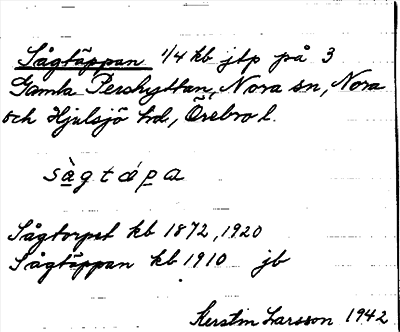 Sågtäppan 1/4 kb jtp på 3
Gamla Pershyttan, Nora sn, Nora
och Hjulsjö hd, Örebro l.
sàgtápa
Sågtorpet kb 1872, 1920
Sågtäppan kb 1910 jb
Kerstin Larsson 1942